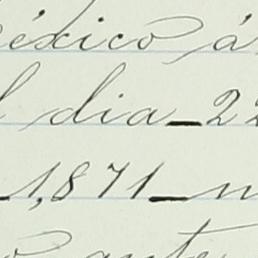 éxico á
l dia_22
_1,871_n
o ante